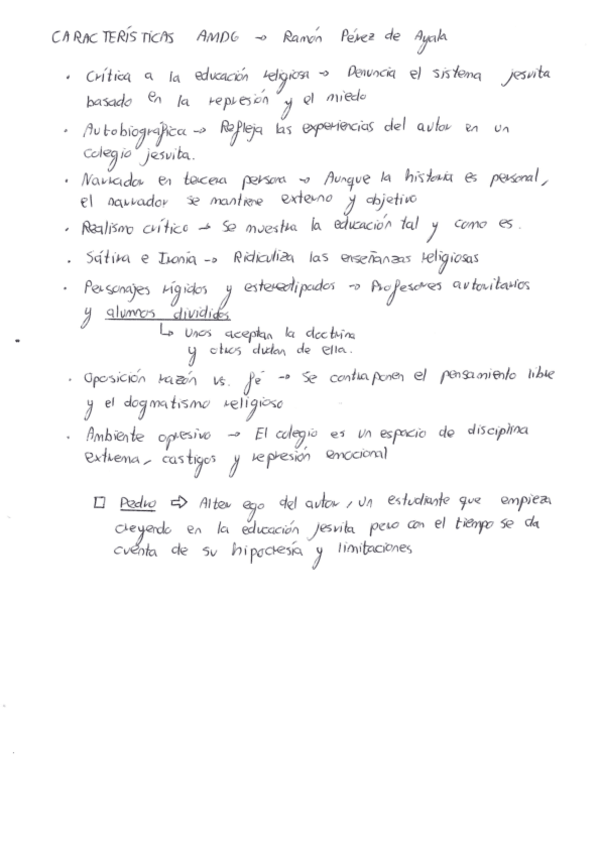 CARACTERÍSTICAS AMDG → Ramón Pérez de Ayala
· Crítica a la educación religiosa → Denuncia el sistema jesuita
basado en la represión y el miedo
· Autobiográfica → Refleja las experiencias del autor en un
colegio jesuita.
· Narrador en tercera persona → Aunque la historia es personal,
el narrador se mantiene externo y objetivo
· Realismo crítico → Se muestra la educación tal y como es.
· Sátira e Ironía → Ridiculiza las enseñanzas religiosas
· Personajes rígidos y estereotipados → Profesores autoritarios
y alumnos divididos
↳ Unos aceptan la doctrina
y otros dudan de ella.
· Oposición razón vs. fé → Se contraponen el pensamiento libre
y el dogmatismo religioso
· Ambiente opresivo → El colegio es un espacio de disciplina
extrema, castigos y represión emocional
□ Pedro ⇒ Alter ego del autor, un estudiante que empieza
creyendo en la educación jesuita pero con el tiempo se da
cuenta de su hipocresía y limitaciones